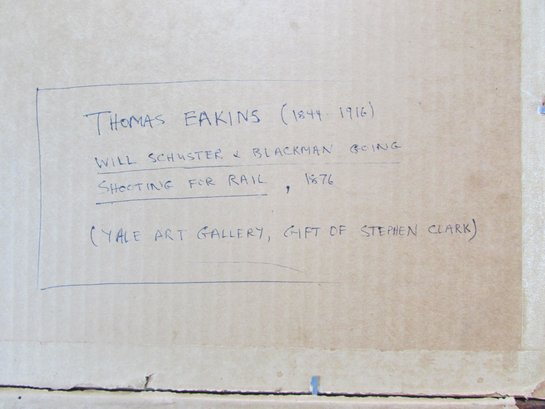 THOMAS EAKINS (1844-1916)
WILL SCHUSTER & BLACKMAN GOING
SHOOTING FOR RAIL, 1876
(YALE ART GALLERY, GIFT OF STEPHEN CLARK)